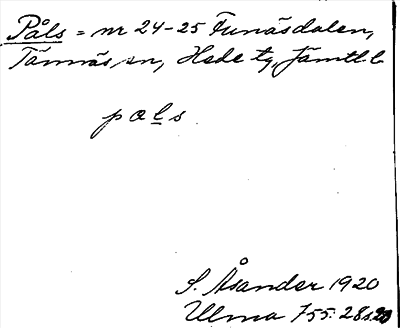 Påls = nr 24-25 Funäsdalen,
Tännäs sn, Hede tg, Jämtl. l.
pals
S. Åsander 1920
Ulma 755: 28 s. 20